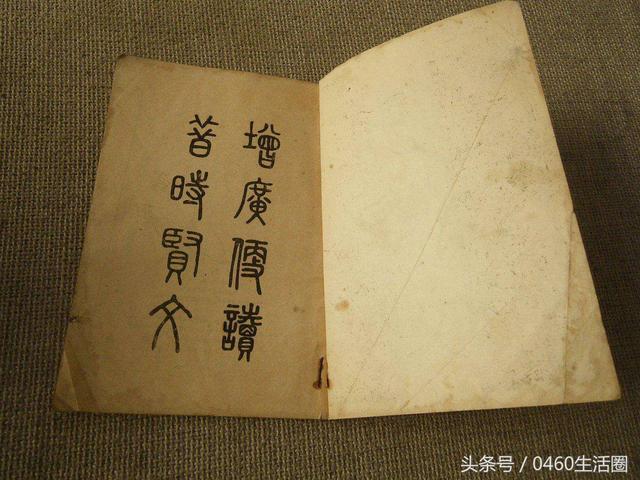 增廣便讀
昔時賢文
头条号 / 0460生活圈